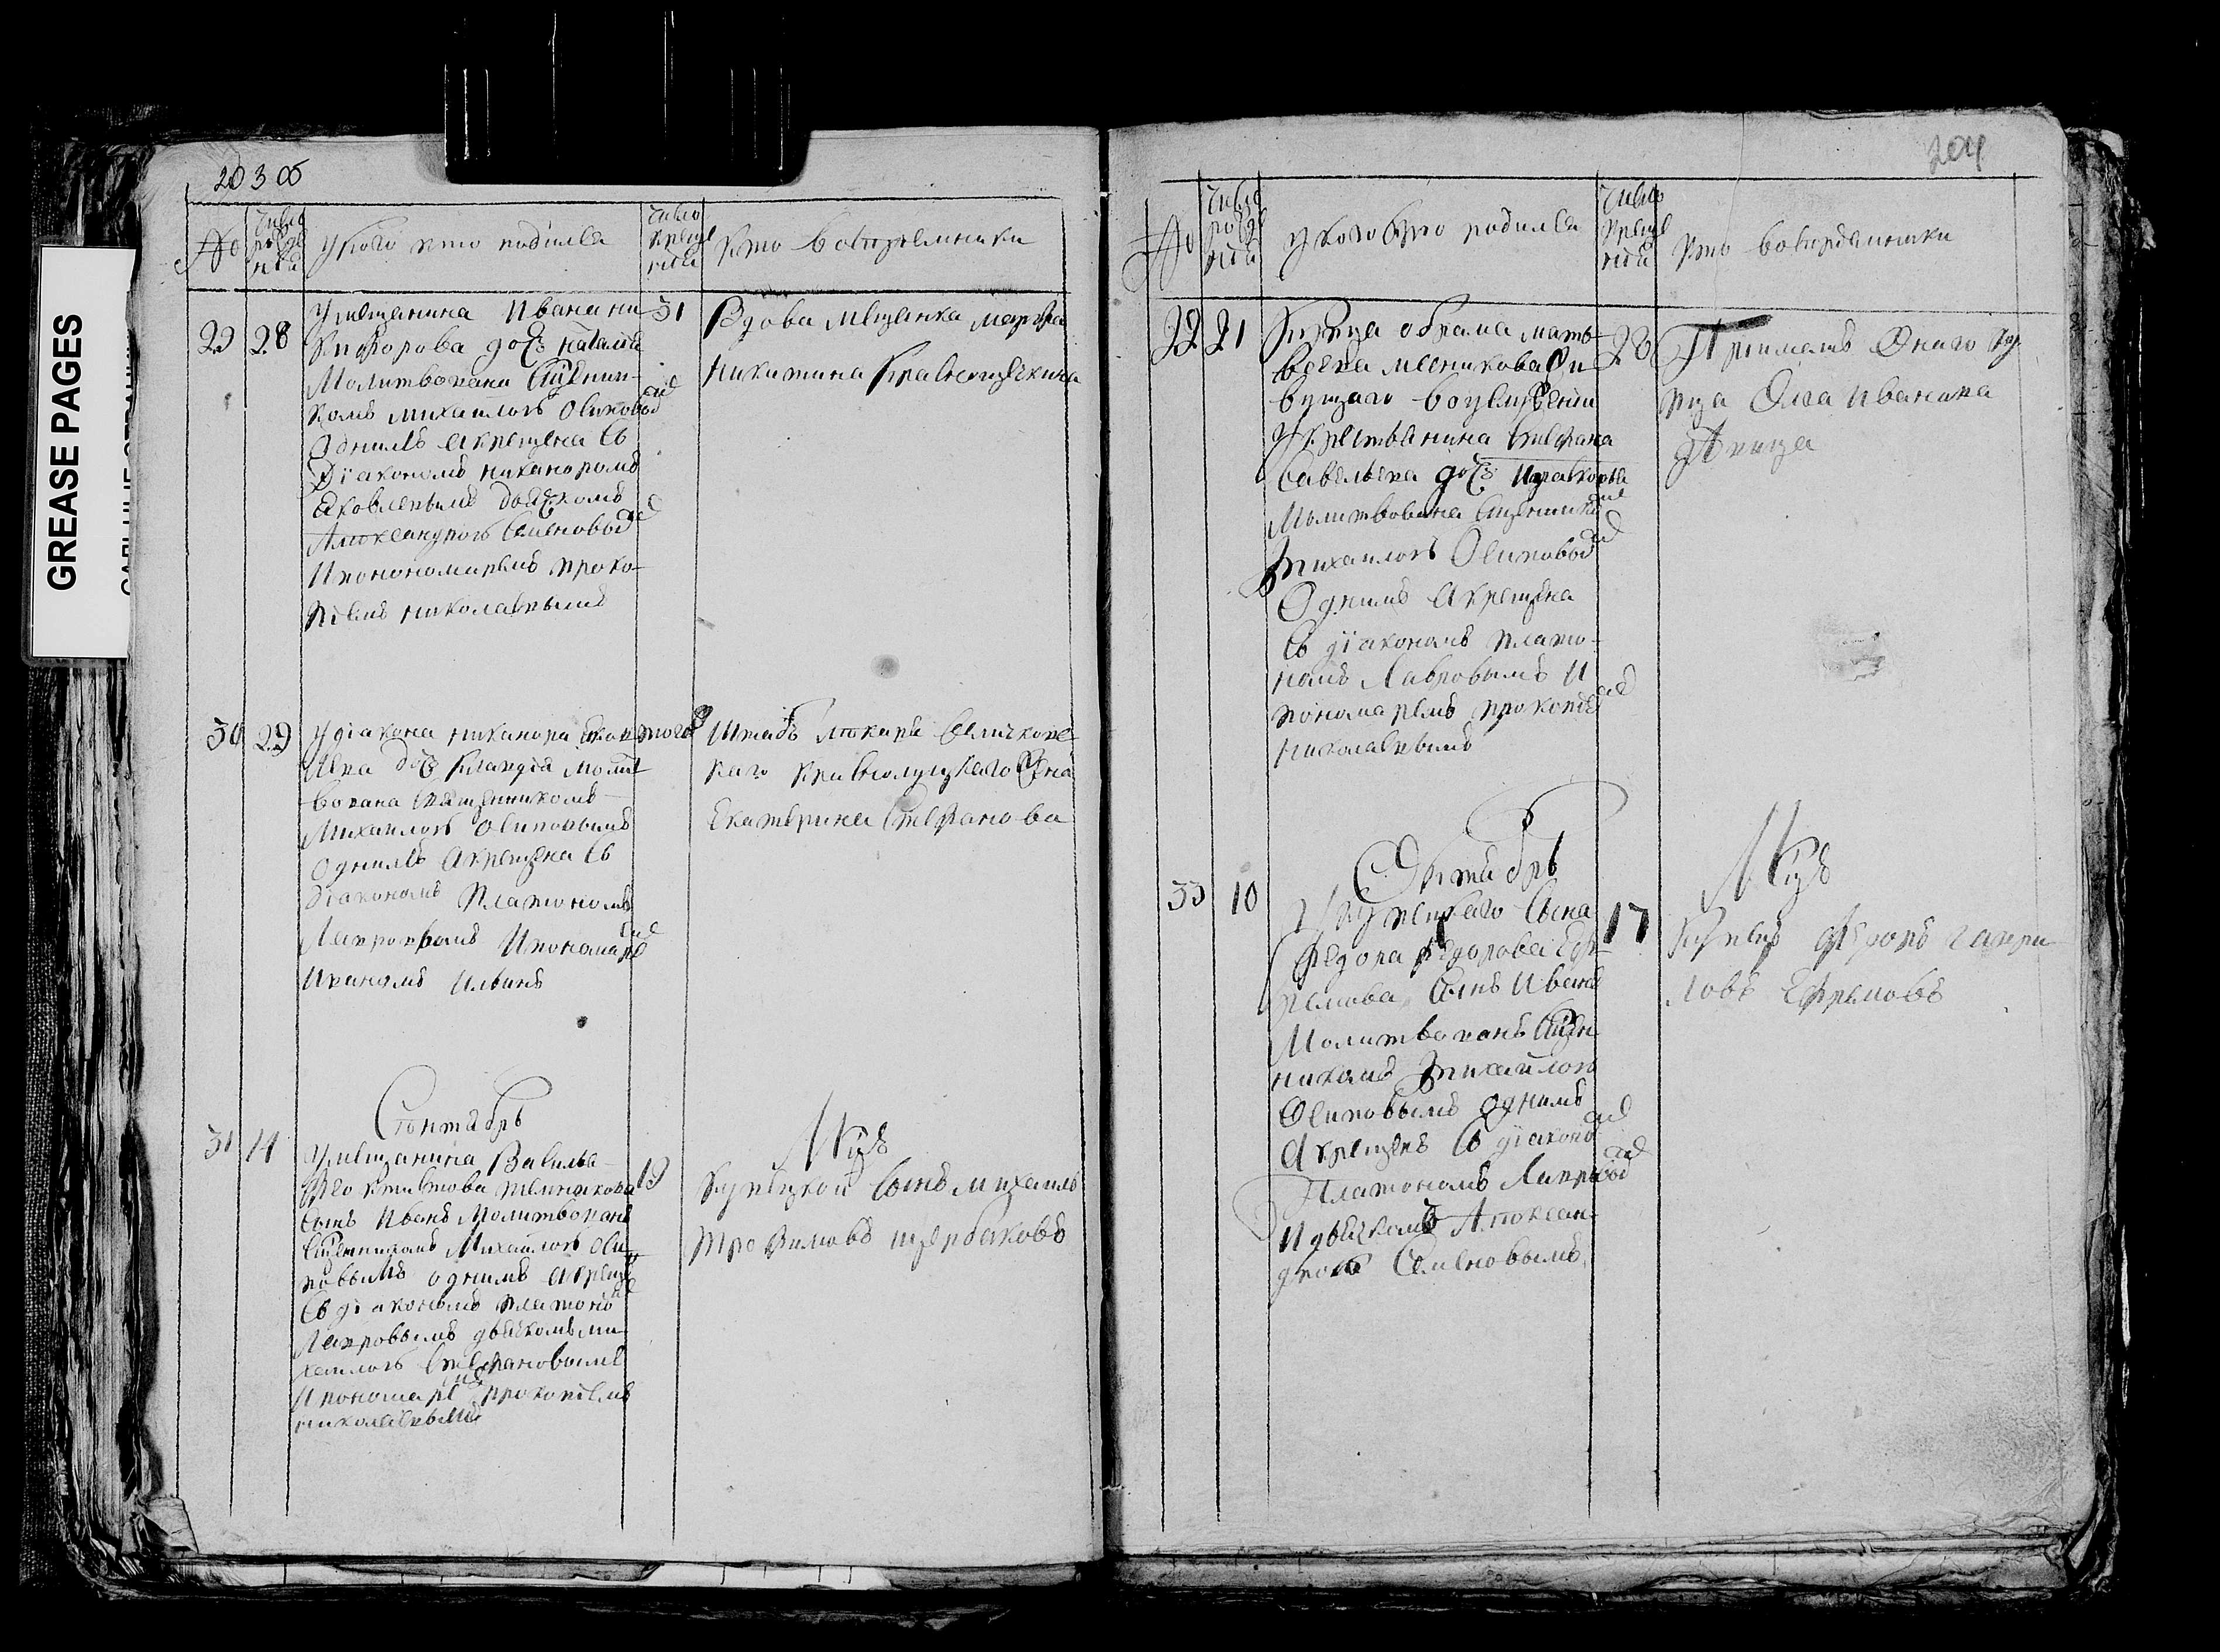 GREASE PAGES
203 об
№
Число рожденiя
У кого кто родился
Число крещенiя
Кто восприемники
29 28
У мещанина Ивана Ни-
кифорова дочь Наталiя
Молитвована Священни-
комъ Михаиломъ Осиповымъ
Однимъ а крещена съ
Дiакономъ Никаноромъ
Яковлевымъ дьячкомъ
Александромъ Семеновымъ
И пономаремъ Проко-
пiемъ Николаевымъ
31
Вдова Мещанка Марфа
Никитина
30 29
У дiакона Никанора Яков-
лева дочь Клавдiя Молит-
вована Священникомъ
Михаиломъ Осиповымъ
Однимъ а крещена съ
дiакономъ Платономъ
Лавровымъ И пономаремъ
Иваномъ Ильинъ
того
Штабъ лекаря
Жена
Екатерина Стефанова
Сентябрь
31 14
У мещанина Василья
сынъ Иванъ Молитвованъ
Священникомъ Михаиломъ Оси-
повымъ однимъ а крещенъ
съ дiакономъ Платономъ
Лавровымъ дьячкомъ Ми-
хаиломъ Стефановымъ
И пономаремъ Прокопiемъ
Николаевымъ
19
Мцъ
Купецкой сынъ Михаилъ
Трофимовъ Щербаковъ
204
№
Число рожденiя
У кого кто родился
Число крещенiя
Кто восприемники
32 21
Купца Абрама Мать-
веева Месникова
вущаго в услуженiи
У крестьянина Стефана
Савельева дочь Парасковья
Молитвована Священникомъ
Михаиломъ Осиповымъ
Однимъ а крещена
съ дiакономъ Плато-
номъ Лавровымъ И
пономаремъ Прокопiемъ
Николаевымъ
23
Прiималъ Онаго ку
пца
Октябрь
33 10
У купецкаго сына
Федора Федорова Еф-
ремова сынъ Иванъ
Молитвованъ Священ-
никомъ Михаиломъ
Осиповымъ однимъ
а крещенъ съ дiакономъ
Платономъ Лавровымъ
И дьячкомъ Алексан-
дромъ Семеновымъ
17
Мцъ
Купецъ Гаври-
ловъ Ефремовъ